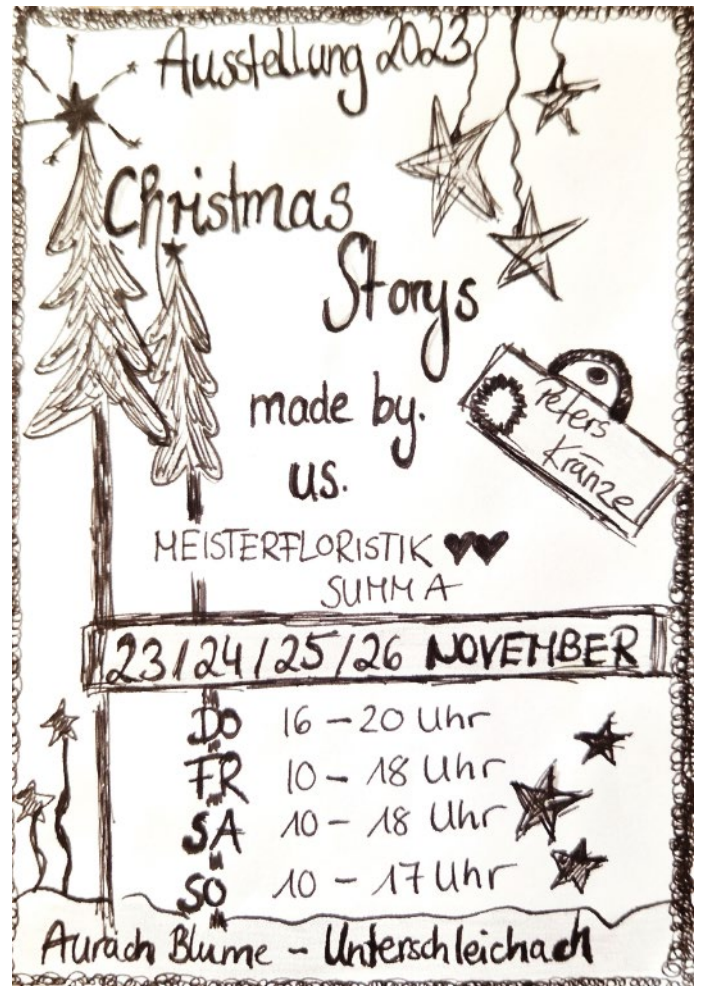 Ausstellung 2023
Christmas
Storys
made by.
us.
Peters
Kränze
MEISTERFLORISTIK
SUMMA
23/24/25/26 NOVEMBER
DO 16-20 Uhr
FR 10-18 Uhr
SA 10-18 Uhr
SO 10-17 Uhr
Aurach Blume - Unterschleichach